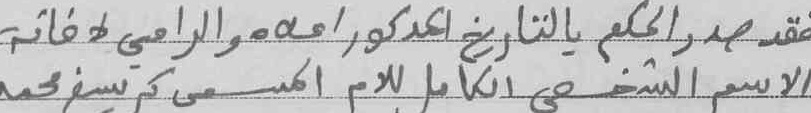 فقد صدر الحكم بالتاريخ المذكور اعلاه والرامي لاضافة
الاسم الشخصي الكامل للام المسمى كم يسفر محمد